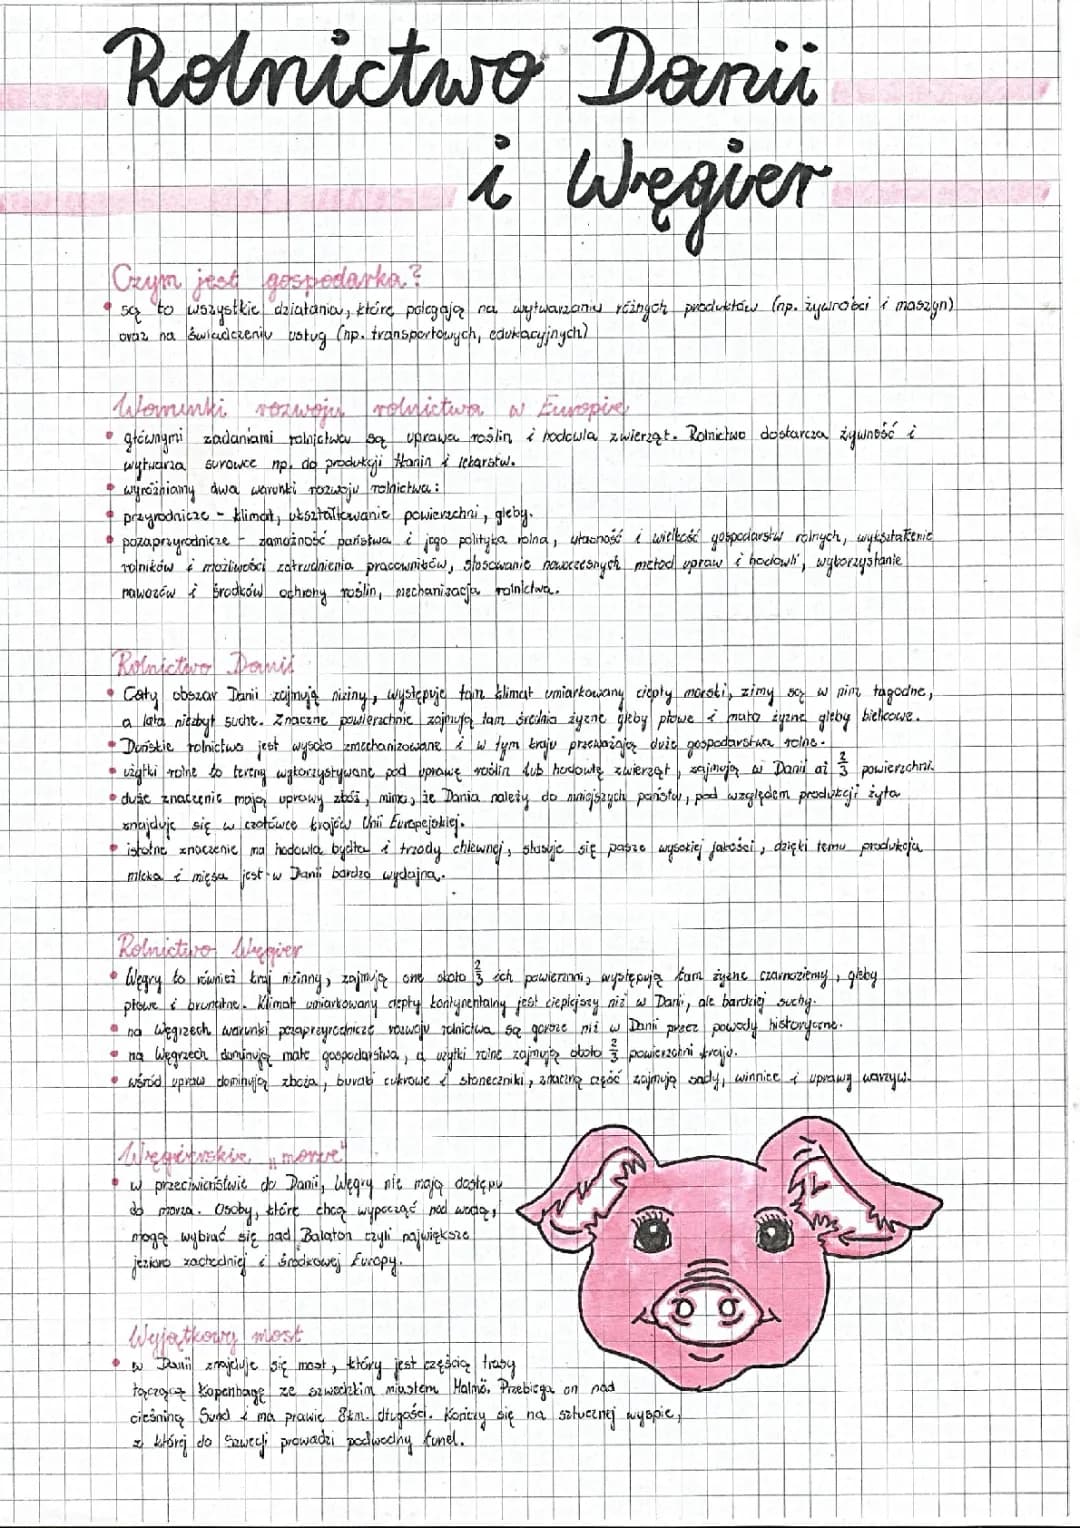 Rolnictwo Danii
i Węgier
Czym jest gospodarka?
• są to wszystkie działania, które polegają na wytwarzaniu różnych produktów (np. żywności i maszyn)
oraz na świadczeniu usług (np. transportowych, edukacyjnych)
Warunki rozwoju rolnictwa w Europie
• głównymi zadaniami rolnictwa są uprawa roślin i hodowla zwierząt. Rolnictwo dostarcza żywność i
wytwarza surowce np. do produkcji tkanin i lekarstw.
• wyróżniamy dwa warunki rozwoju rolnictwa:
• przyrodnicze - klimat, ukształtowanie powierzchni, gleby.
• pozaprzyrodnicze - zamożność państwa i jego polityka rolna, własność i wielkość gospodarstw rolnych, wykształcenie
rolników i możliwości zatrudnienia pracowników, stosowanie nowoczesnych metod upraw i hodowli, wykorzystanie
nawozów i środków ochrony roślin, mechanizacja rolnictwa.
Rolnictwo Danii
• Cały obszar Danii zajmują niziny, występuje tam klimat umiarkowany ciepły morski, zimy są w nim łagodne,
a lata niezbyt suche. Znaczne powierzchnie zajmują tam średnio żyzne gleby płowe i mało żyzne gleby bielicowe.
• Duńskie rolnictwo jest wysoko zmechanizowane i w tym kraju przeważają duże gospodarstwa rolne.
• użytki rolne to tereny wykorzystywane pod uprawę roślin lub hodowlę zwierząt, zajmują w Danii aż 2/3 powierzchni.
• duże znaczenie mają uprawy zbóż, mimo, że Dania należy do mniejszych państw, pod względem produkcji żyta
znajduje się w czołówce krajów Unii Europejskiej.
• istotne znaczenie ma hodowla bydła i trzody chlewnej, stosuje się paszę wysokiej jakości, dzięki temu produkcja
mleka i mięsa jest w Danii bardzo wydajna.
Rolnictwo Węgier
• Węgry to również kraj nizinny, zajmują one około 2/3 ich powierzni, występują tam żyzne czarnoziemy, gleby
płowe i brunatne. Klimat umiarkowany ciepły kontynentalny jest cieplejszy niż w Danii, ale bardziej suchy.
• na Węgrzech warunki pozaprzyrodnicze rozwoju rolnictwa są gorsze niż w Danii przez powody historyczne.
• na Węgrzech dominują małe gospodarstwa, a użytki rolne zajmują około 2/3 powierzchni kraju.
• wśród upraw dominują zboża, buraki cukrowe i słoneczniki, znaczną część zajmują sady, winnice i uprawy warzyw.
Węgierskie „morze"
• w przeciwieństwie do Danii, Węgry nie mają dostępu
do morza. Osoby, które chcą wypocząć nad wodą,
mogą wybrać się nad Balaton czyli największe
jezioro zachodniej i środkowej Europy.
Wyjątkowy most
• w Danii znajduje się most, który jest częścią trasy
łączącą Kopenhagę ze szwedzkim miastem Malmö. Przebiega on nad
cieśniną Sund i ma prawie 8km. długości. Kończy się na sztucznej wyspie,
z której do Szwecji prowadzi podwodny tunel.